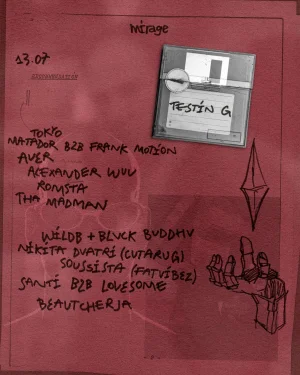 mirage
13.07
TESTIN G
TOKYO
MATADOR B2B FRANK MOTION
AVER
ALEXANDER WUU
ROMSTA
THA MADMAN
WILDB + BLVCK BUDDHV
NIKITA DVATRI (CUTARUG)
SOUSSISTA (FATVIBEZ)
SANTI B2B LOVESOME
BEAUTCHERJA